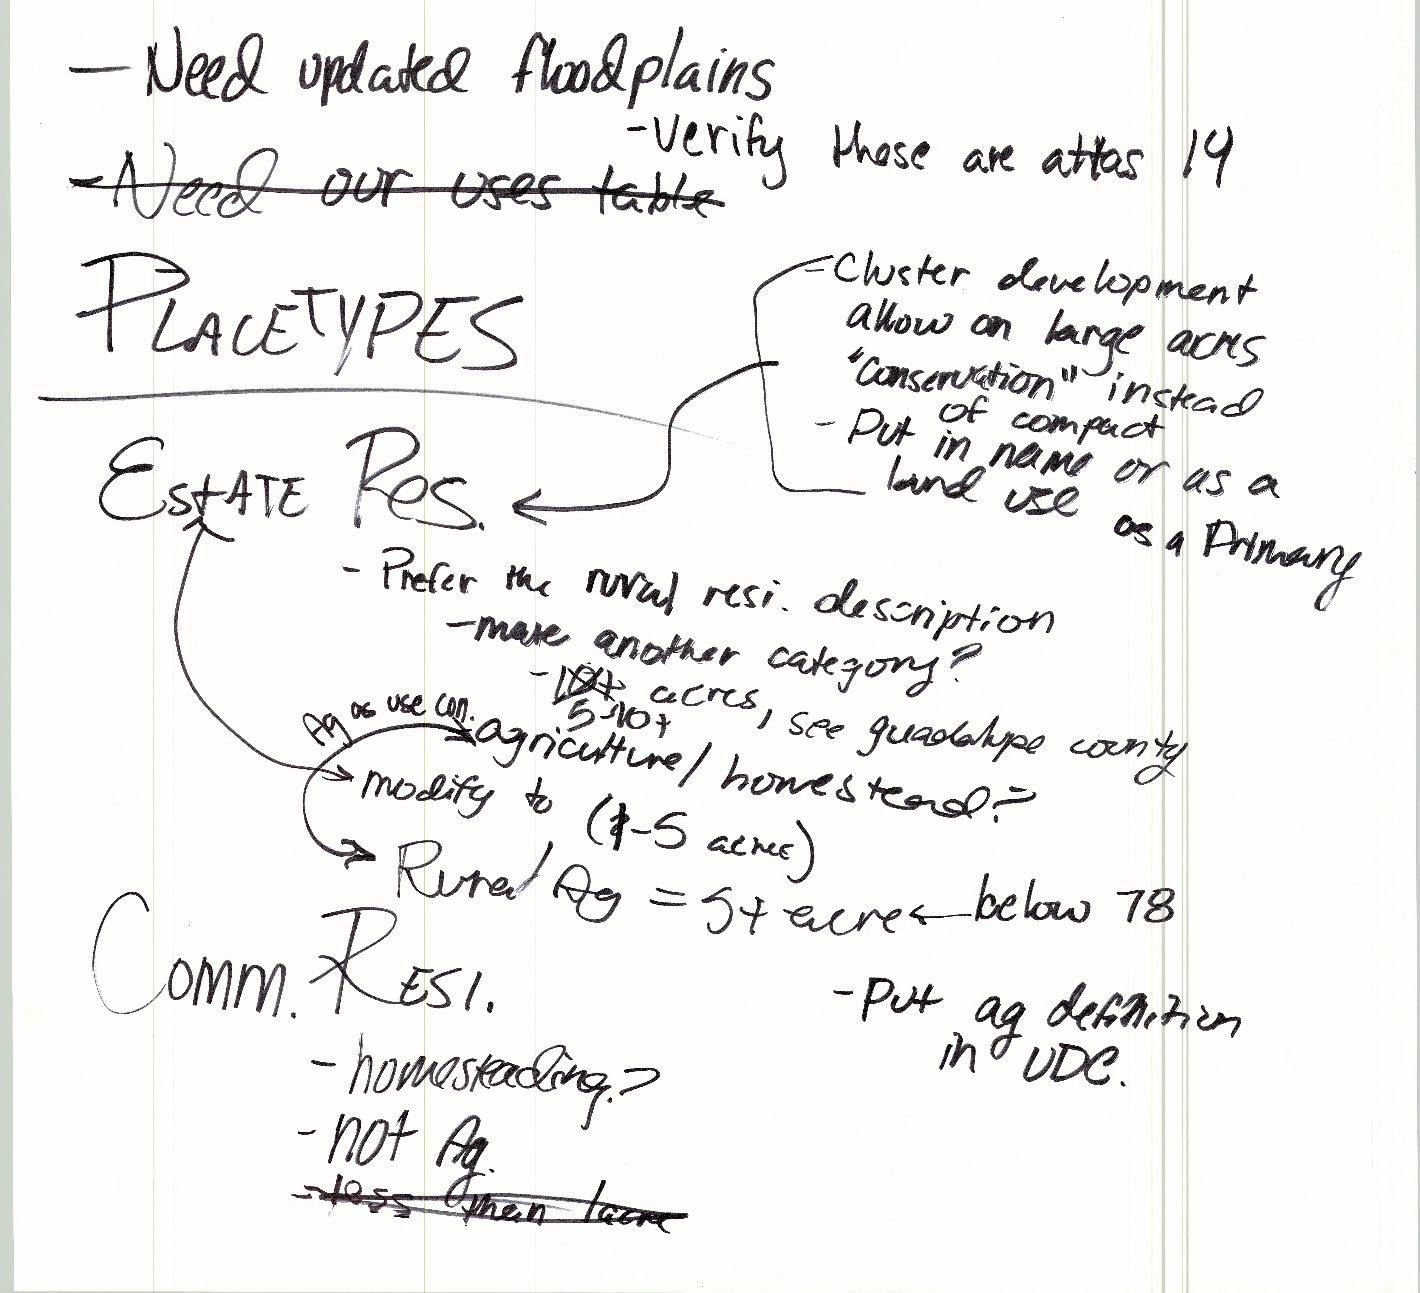 — Need updated floodplains
- Verify these are atlas 14
- Need our uses table
PLACETYPES
- Cluster development
allow on large acres
"Conservation" instead
of compact
- Put in name or as a
land use
as a Primary
ESTATE RES.
- Prefer the rural resi. description
- make another category?
- 10+ acres, see guadalupe county
5-10+
Ag as use con.
agriculture/homestead?
modify to (1-5 acres)
Rural/Ag = 5+ acre ← below 78
COMM. RESI.
- Put ag definition
in UDC.
- homesteading?
- not Ag.
- less than 1 acre